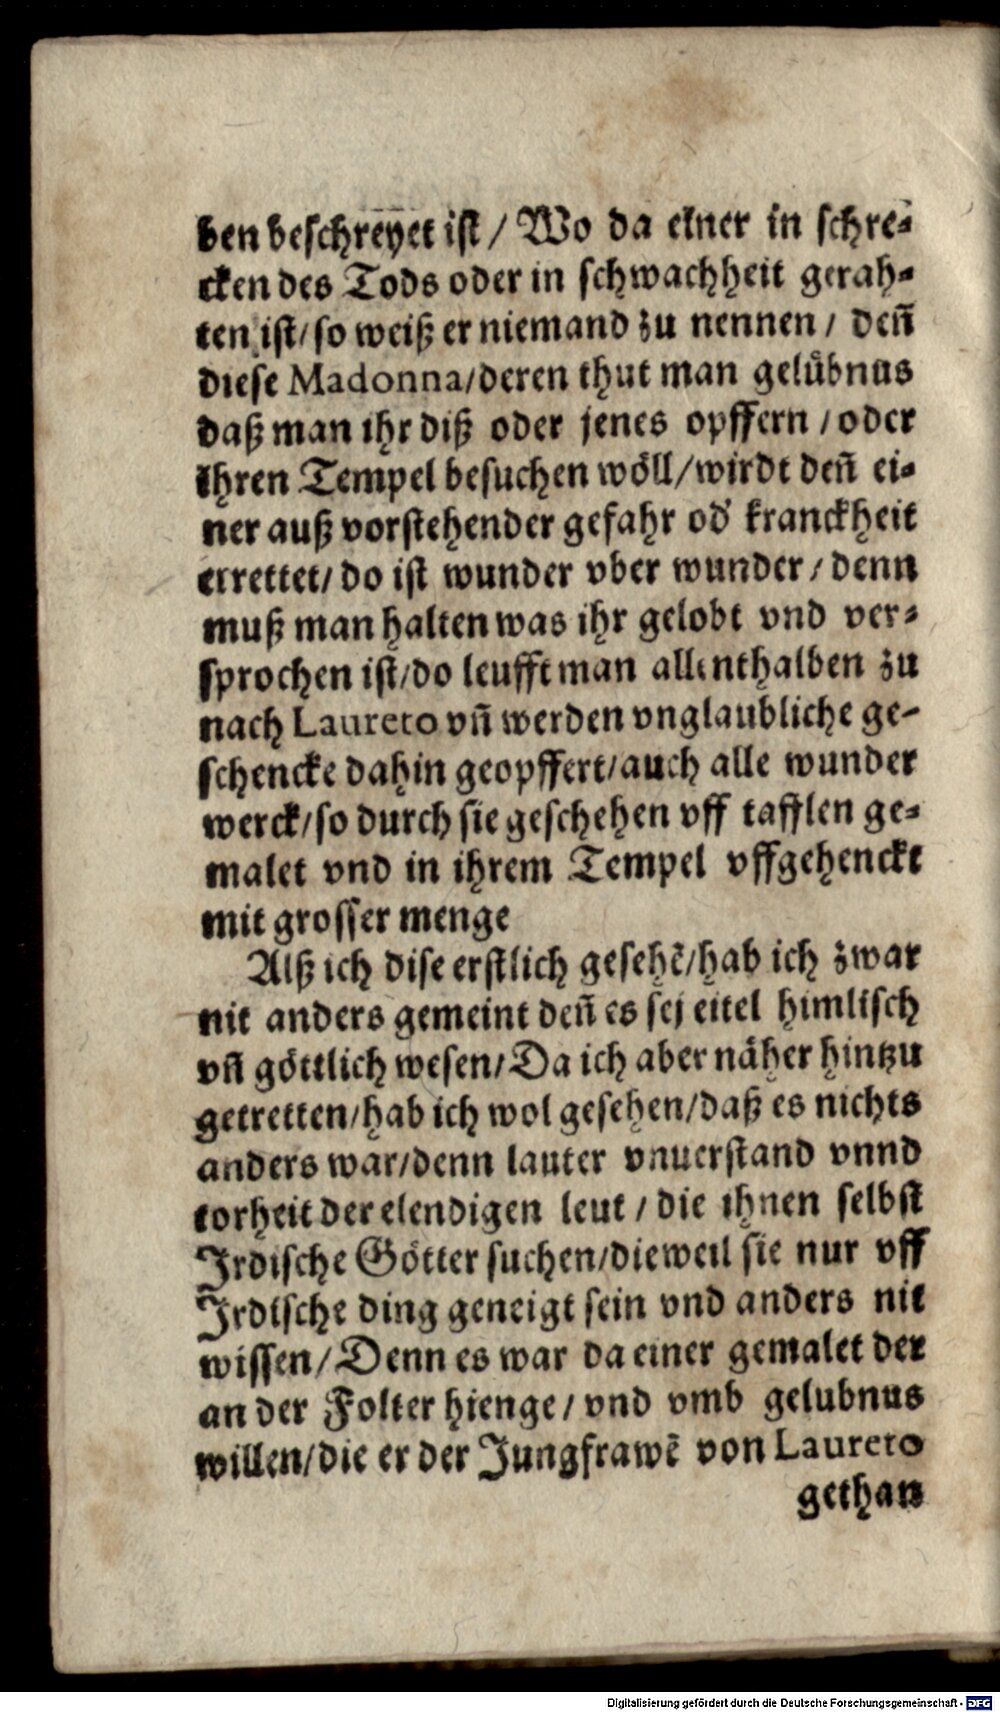 ben beschreyet ist / Wo da einer in schre-
cken des Tods oder in schwachheit gerah-
ten ist / so weiß er niemand zu nennen / deñ
diese Madonna / deren thut man gelübnus
daß man ihr diß oder jenes opffern / oder
ihren Tempel besuchen wöll / wirdt deñ ei-
ner auß vorstehender gefahr od' kranckheit
errettet / do ist wunder vber wunder / denn
muß man halten was ihr gelobt vnd ver-
sprochen ist / do leufft man allenthalben zu
nach Laureto vñ werden vnglaubliche ge-
schencke dahin geopffert / auch alle wunder
werck / so durch sie geschehen vff tafflen ge-
malet vnd in ihrem Tempel vffgehenckt
mit grosser menge
Alß ich dise erstlich gesehẽ / hab ich zwar
nit anders gemeint deñ es sej eitel himlisch
vñ göttlich wesen / Da ich aber näher hintzu
getretten / hab ich wol gesehen / daß es nichts
anders war / denn lauter vnuerstand vnnd
torheit der elendigen leut / die ihnen selbst
Irdische Götter suchen / dieweil sie nur vff
Irdische ding geneigt sein vnd anders nit
wissen / Denn es war da einer gemalet der
an der Folter hienge / vnd vmb gelubnus
willen / die er der Jungfrawẽ von Laureto
gethan
Digitalisierung gefördert durch die Deutsche Forschungsgemeinschaft - DFG